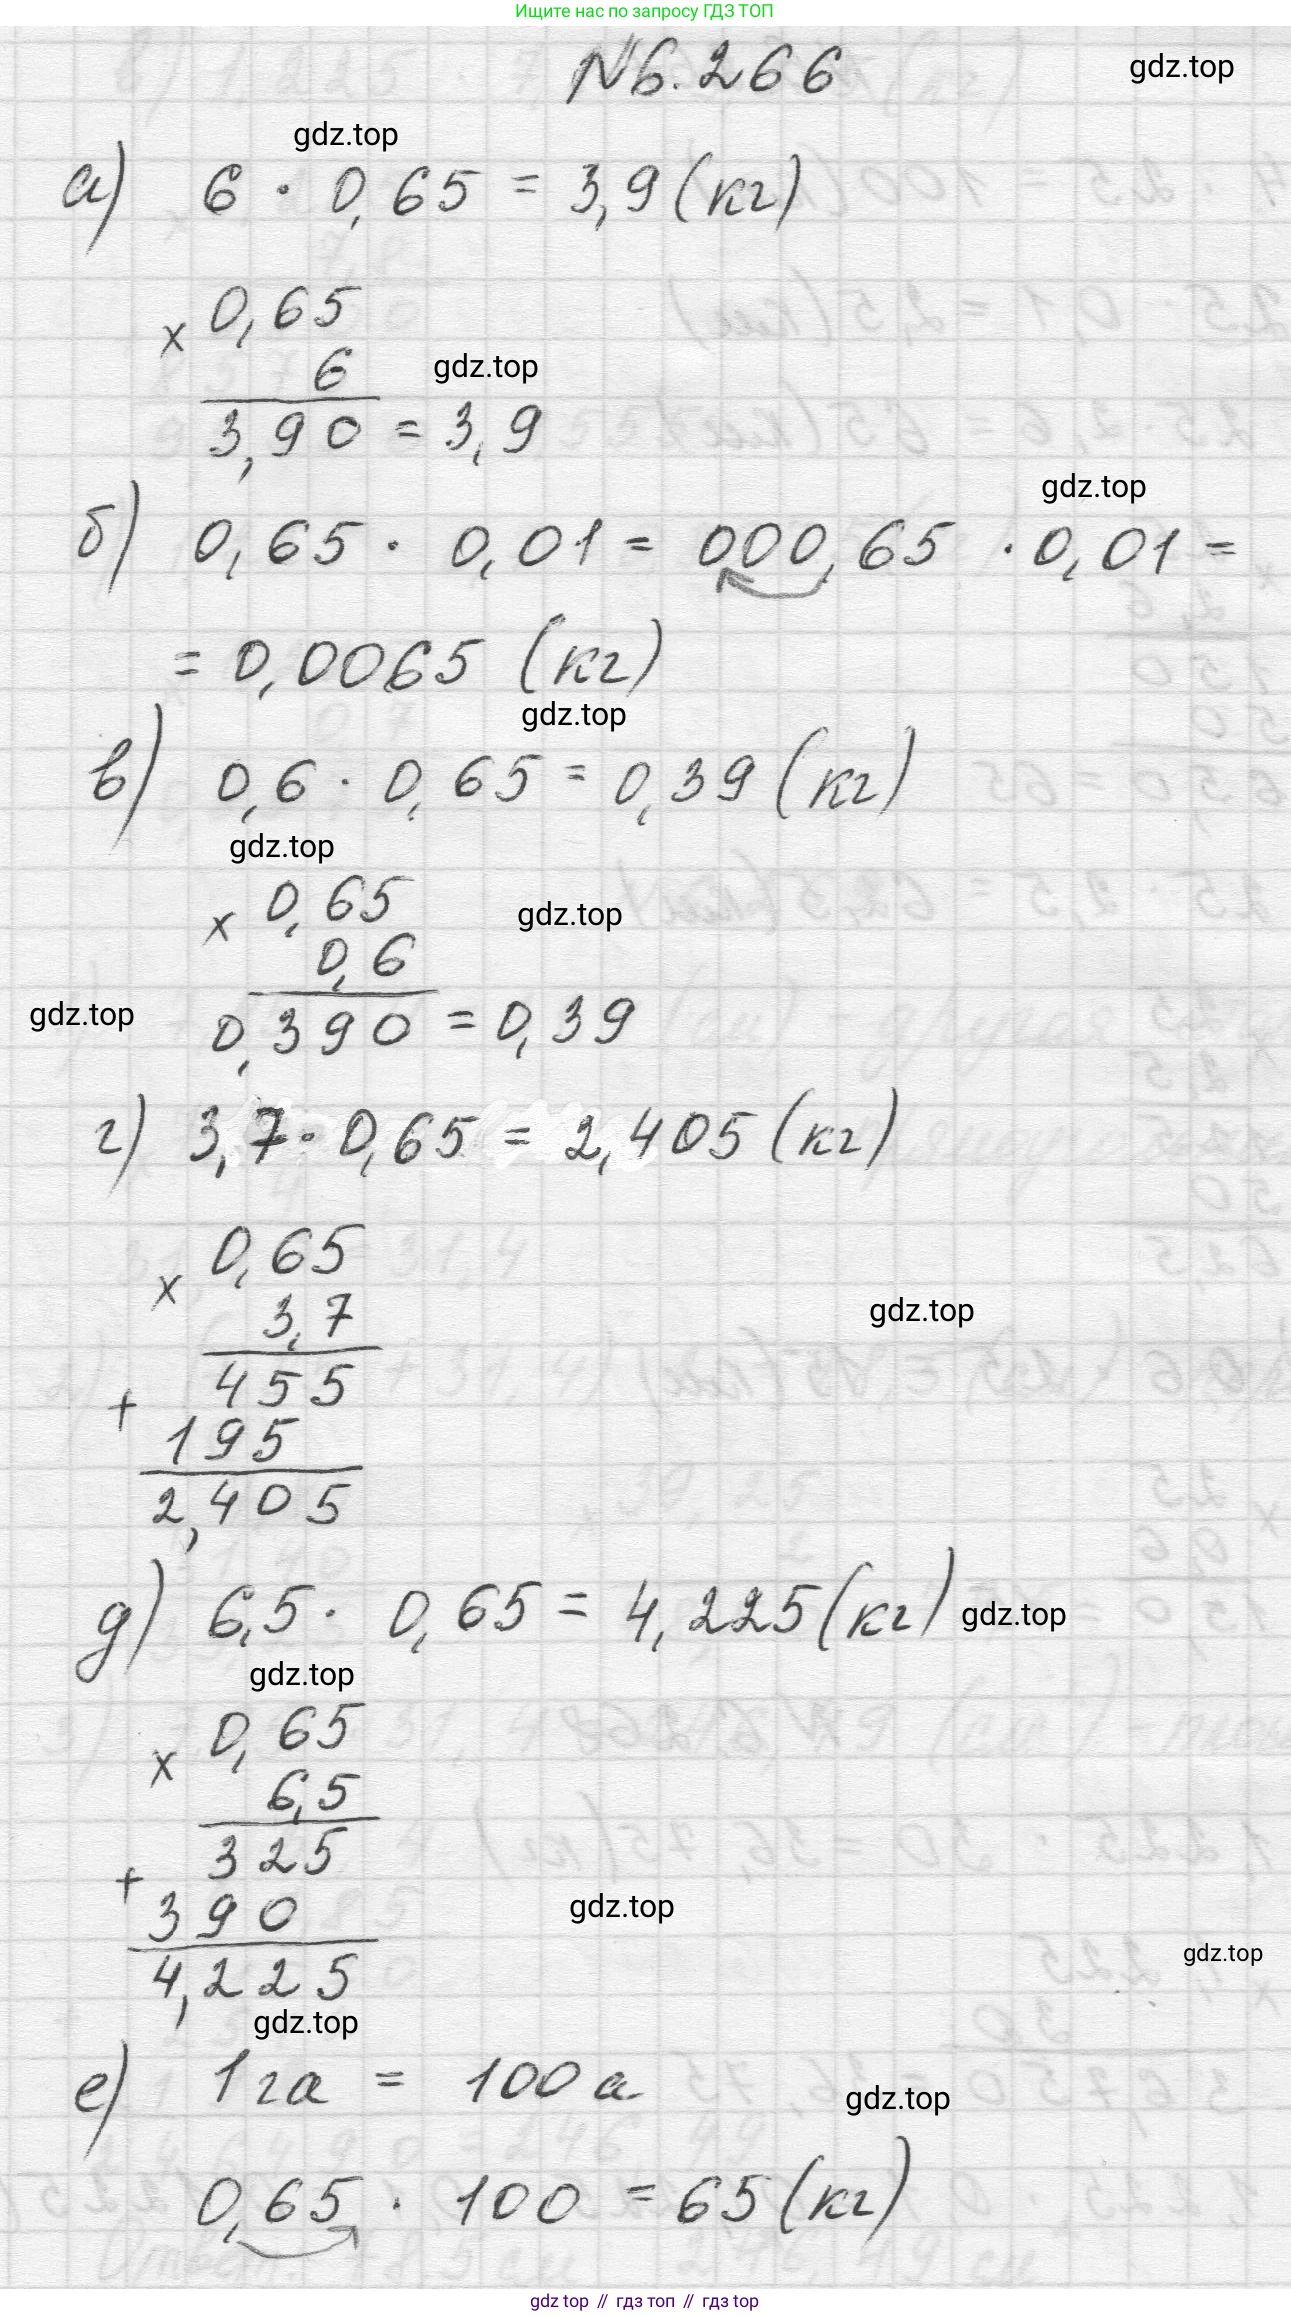 Ищите нас по запросу ГДЗ ТОП
№6.266
gdz.top
gdz.top
а) 6 · 0,65 = 3,9 (кг)
0,65
× 6
gdz.top
3,90 = 3,9
gdz.top
б) 0,65 · 0,01 = 000,65 · 0,01 =
= 0,0065 (кг)
gdz.top
в) 0,6 · 0,65 = 0,39 (кг)
gdz.top
× 0,65
gdz.top
0,6
gdz.top
0,390 = 0,39
г) 3,7 · 0,65 = 2,405 (кг)
× 0,65
3,7
gdz.top
455
+ 195
2,405
д) 6,5 · 0,65 = 4,225 (кг)
gdz.top
gdz.top
× 0,65
6,5
325
+ 390
gdz.top
gdz.top
4,225
gdz.top
е) 1 га = 100 а
gdz.top
0,65 · 100 = 65 (кг)
gdz top // гдз топ // гдз top